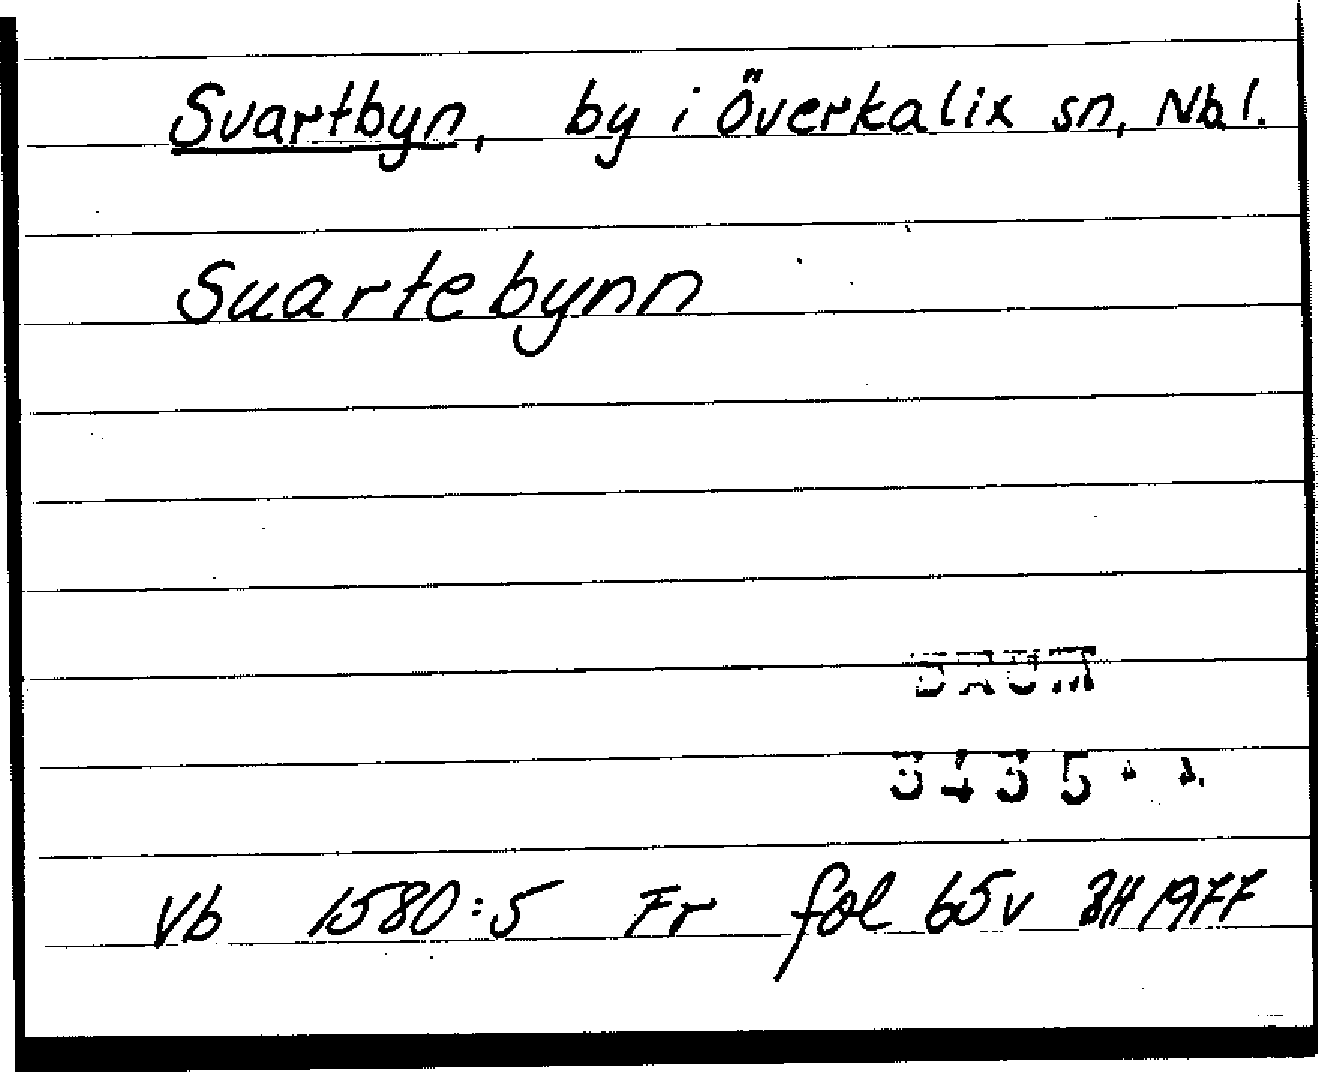 Svartbyn, by i Överkalix sn, Nbl.
Suartebynn
DAUM
Vb 1580:5 Fr fol 65v BH 1977